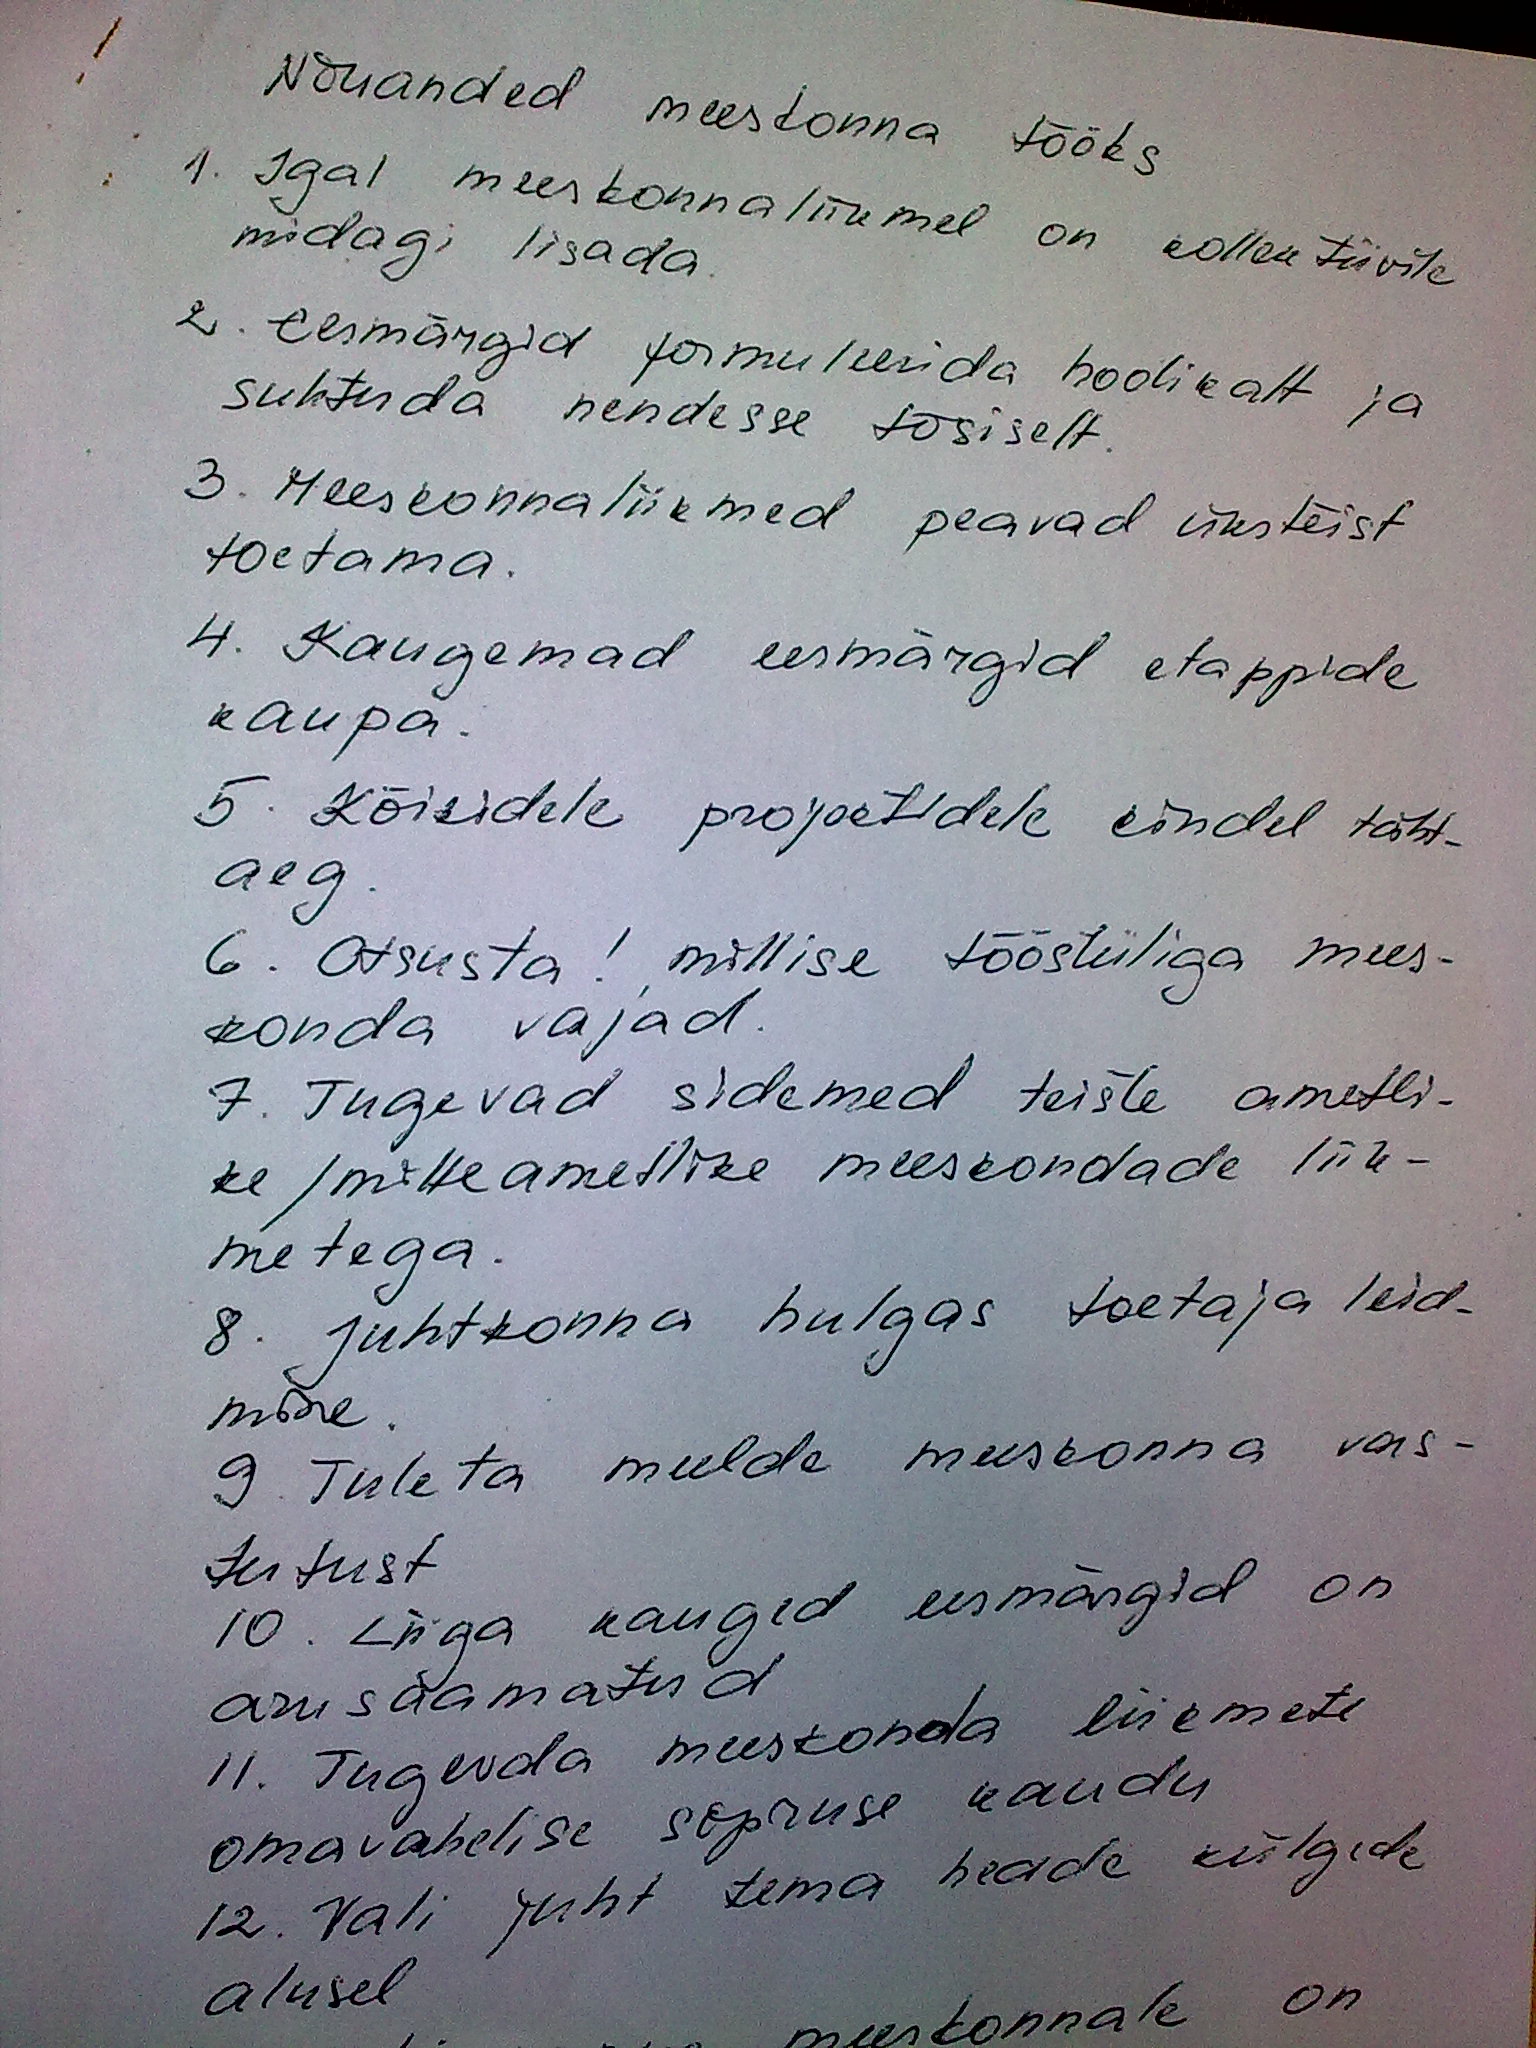 Nõuanded meeskonna tööks
1. Igal meeskonnaliikmel on kollektiivile
midagi lisada.
2. Eesmärgid formuleerida hoolikalt ja
suhtuda nendesse tõsiselt.
3. Meeskonnaliikmed peavad üksteist
toetama.
4. Kaugemad eesmärgid etappide
kaupa.
5. Kõikidele projektidele kindel täht-
aeg.
6. Otsusta!, millise tööstiiliga mees-
konda vajad.
7. Tugevad sidemed teiste ametli-
ke/mitteametlike meeskondade liik-
metega.
8. Juhtkonna hulgas toetaja leid-
mine.
9 Tuleta meelde meeskonna vas-
tutust
10. Liiga kauged eesmärgid on
arusaamatud
11. Tugevda meeskonda liikmete
omavahelise sõpruse kaudu
12. Vali juht tema heade külgede
alusel
meeskonnale on